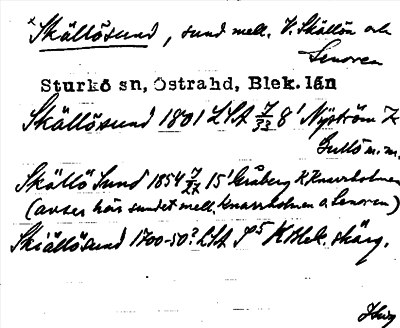 *Skällösund, sund mell. V. Skällön och
Senoren
Sturkö sn, Östrahd, Blek. län
Skällösund 1801 LSA 7/33 8' Nyström K
Gullö m.m.
Skällö Sund 1854 7/27 15' Gråberg K Knarrholmen
(avser här sundet mell. Knarrholmen o. Senoren)
Skiällösund 1700-50? LSA S5 K Blek. skärg.